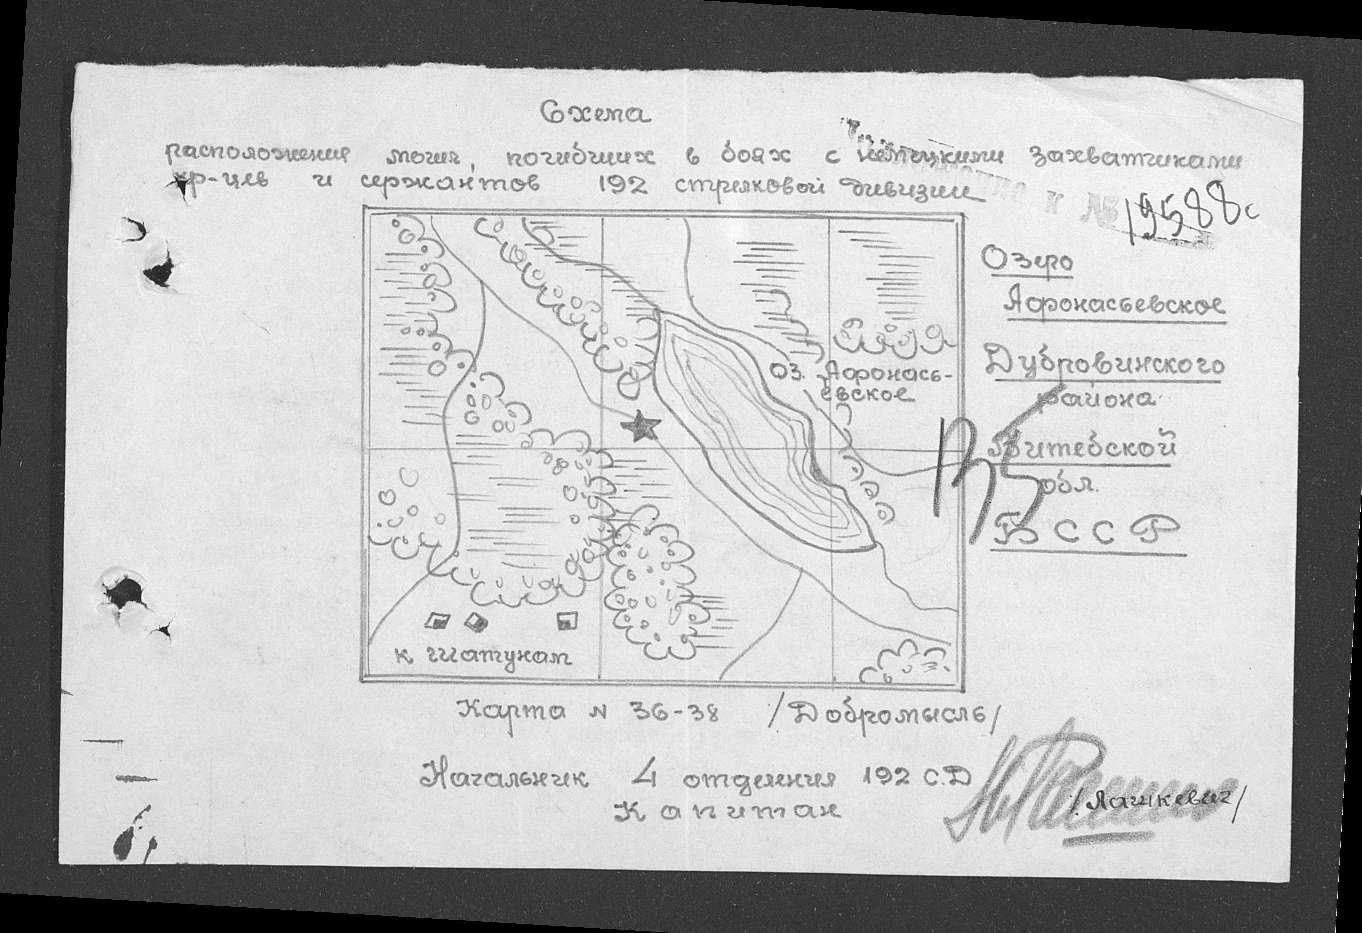 Схема
расположения могил, погибших в боях с немецкими захватчиками
кр-цев и сержантов 192 стрелковой дивизии
к №
19588с
Озеро
Афонасьевское
Дубровинского
района
Витебской
обл.
БССР
оз. Афонась-
евское
к Шатунам
Карта N 36-38 /Добромысль/
Начальник 4 отделения 192 С.Д
Капитан
/Лашкевич/